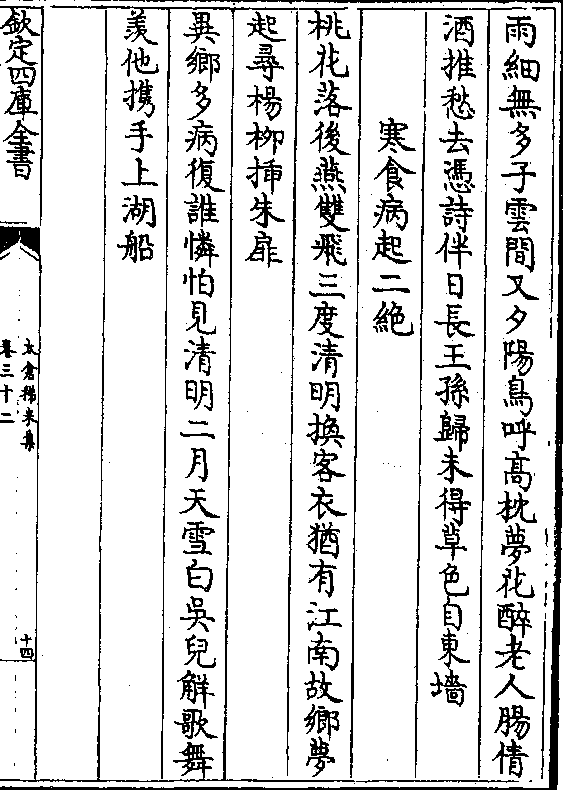 雨細無多子雲間又夕陽鳥呼高枕夢花醉老人腸倩
酒推愁去憑詩伴日長王孫歸未得草色自東墻
寒食病起二絶
桃花落後燕雙飛三度清明換客衣猶有江南故鄉夢
起尋楊柳揷朱扉
異鄉多病復誰憐怕見清明二月天雪白吳兒解歌舞
羨他攜手上湖船
欽定四庫全書
太倉稊米集
卷三十二
十四